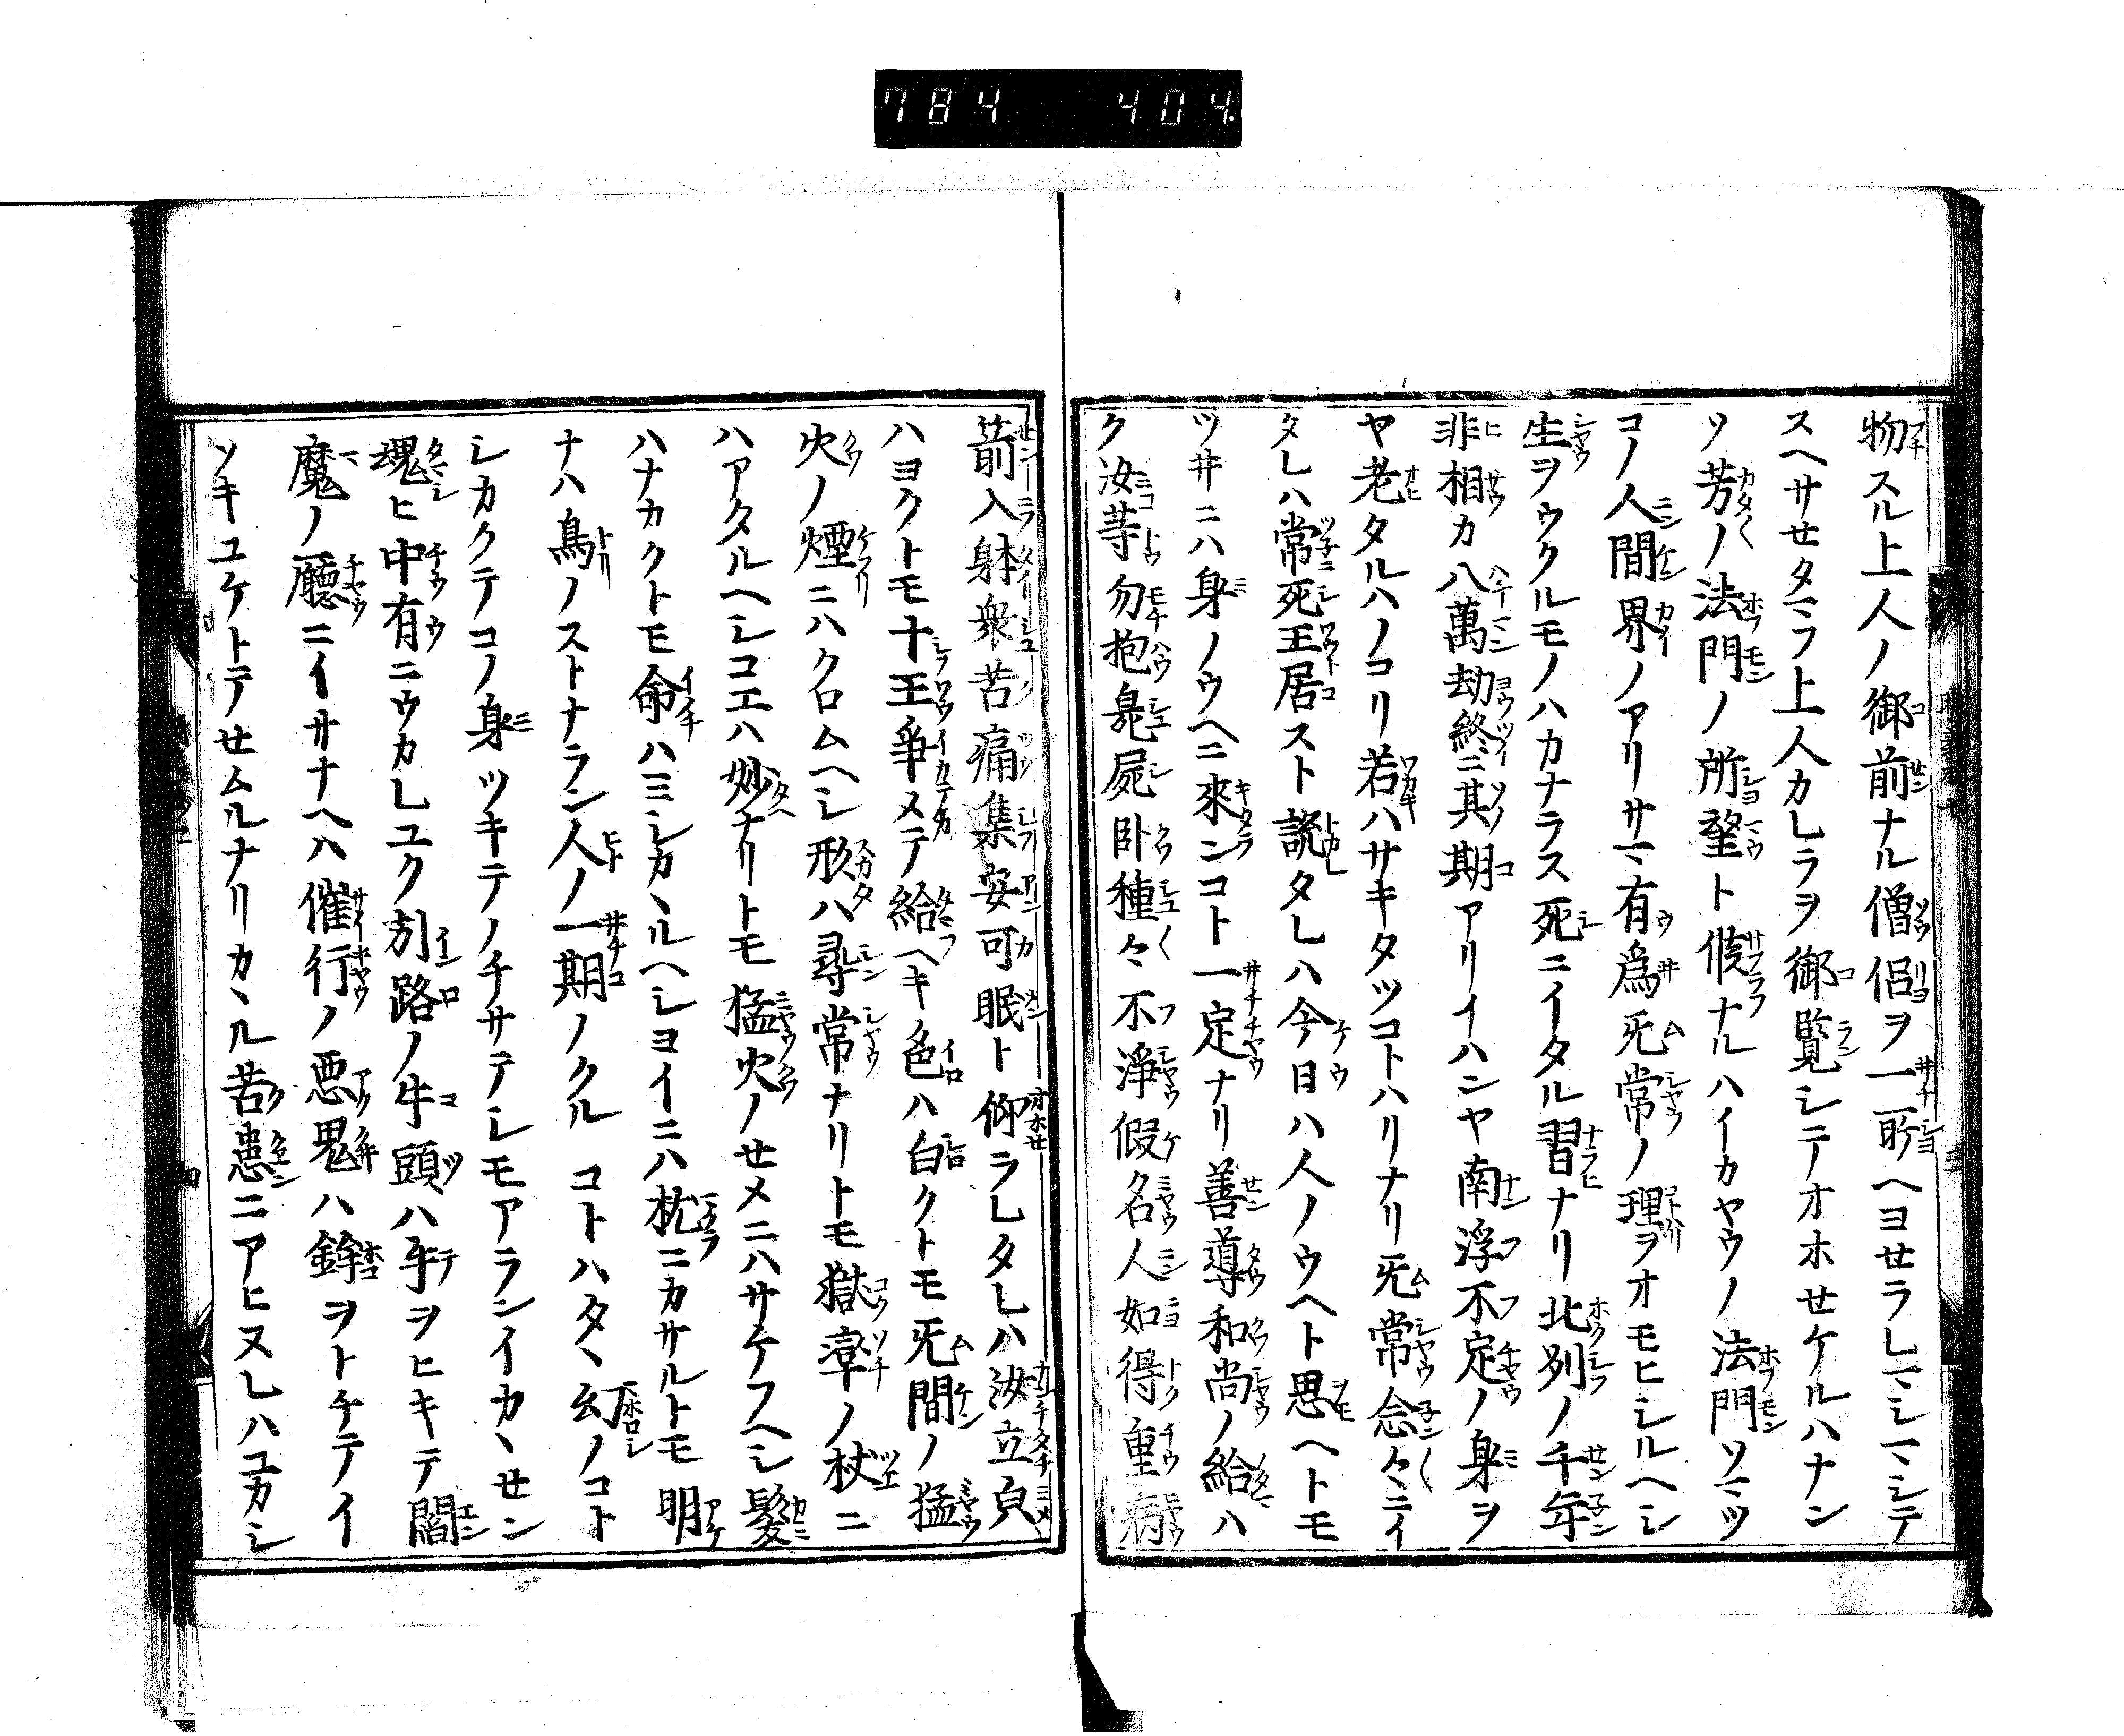 784 404.
物スル上人ノ御前ナル僧侶ヲ一所ヘヨセラレマシマシテ
スヘサセタマフ上人カシラヲ御覧シテオホセケルハナン
ソ芳ノ法門ノ所望ト候ナルハイカヤウノ法門ソマツ
コノ人間界ノアリサマ有為旡常ノ理ヲオモヒシルヘシ
生ヲウクルモノハカナラス死ニイタル習ナリ北列ノ千年
非相カ八萬劫終ニ其期アリイハンヤ南浮不定ノ身ヲ
ヤ老タルハノコリ若ハサキタツコトハリナリ旡常念々ニイ
タレハ常死王居スト説タレハ今日ハ人ノウヘト思ヘトモ
ツ井ニハ身ノウヘニ來ンコト一定ナリ善導和尚ノ給ハ
ク汝等勿抱臰屍卧種々不淨假名人如得重病
箭入躰衆苦痛集安可眠ト仰ラレタレハ汝立皃
ハヨクトモ十王争メテ給ヘキ色ハ白クトモ旡間ノ猛
火ノ煙ニハクロムヘシ形ハ尋常ナリトモ獄率ノ杖ニ
ハアタルヘシコエハ妙ナリトモ猛火ノセメニハサケフヘシ髪
ハナカクトモ命ハミシカヽルヘシヨイニハ枕ニカサルトモ明
ナハ鳥ノストナラン人ノ一期ノクルコトハタヽ幻ノコト
シカクテコノ身ツキテノチサテシモアランイカヽセン
魂ヒ中有ニウカレユク別路ノ牛頭ハ手ヲヒキテ閻
魔ノ廳ニイサナヘハ催行ノ悪鬼ハ鉾ヲトチテイ
ソキユケトテセムルナリカヽル苦患ニアヒヌレハユカシ